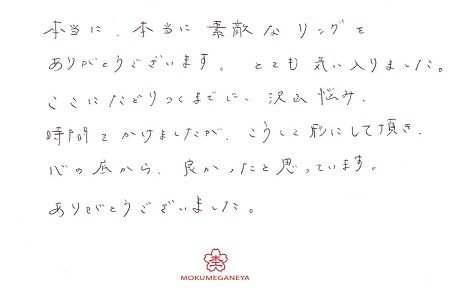 本当に、本当に素敵なリングを
ありがとうございます。とても気に入りました。
ここにたどりつくまでに、沢山悩み、
時間をかけましたが、こうして形にして頂き、
心の底から、良かったと思っています。
ありがとうございました。
MOKUMEGANEYA